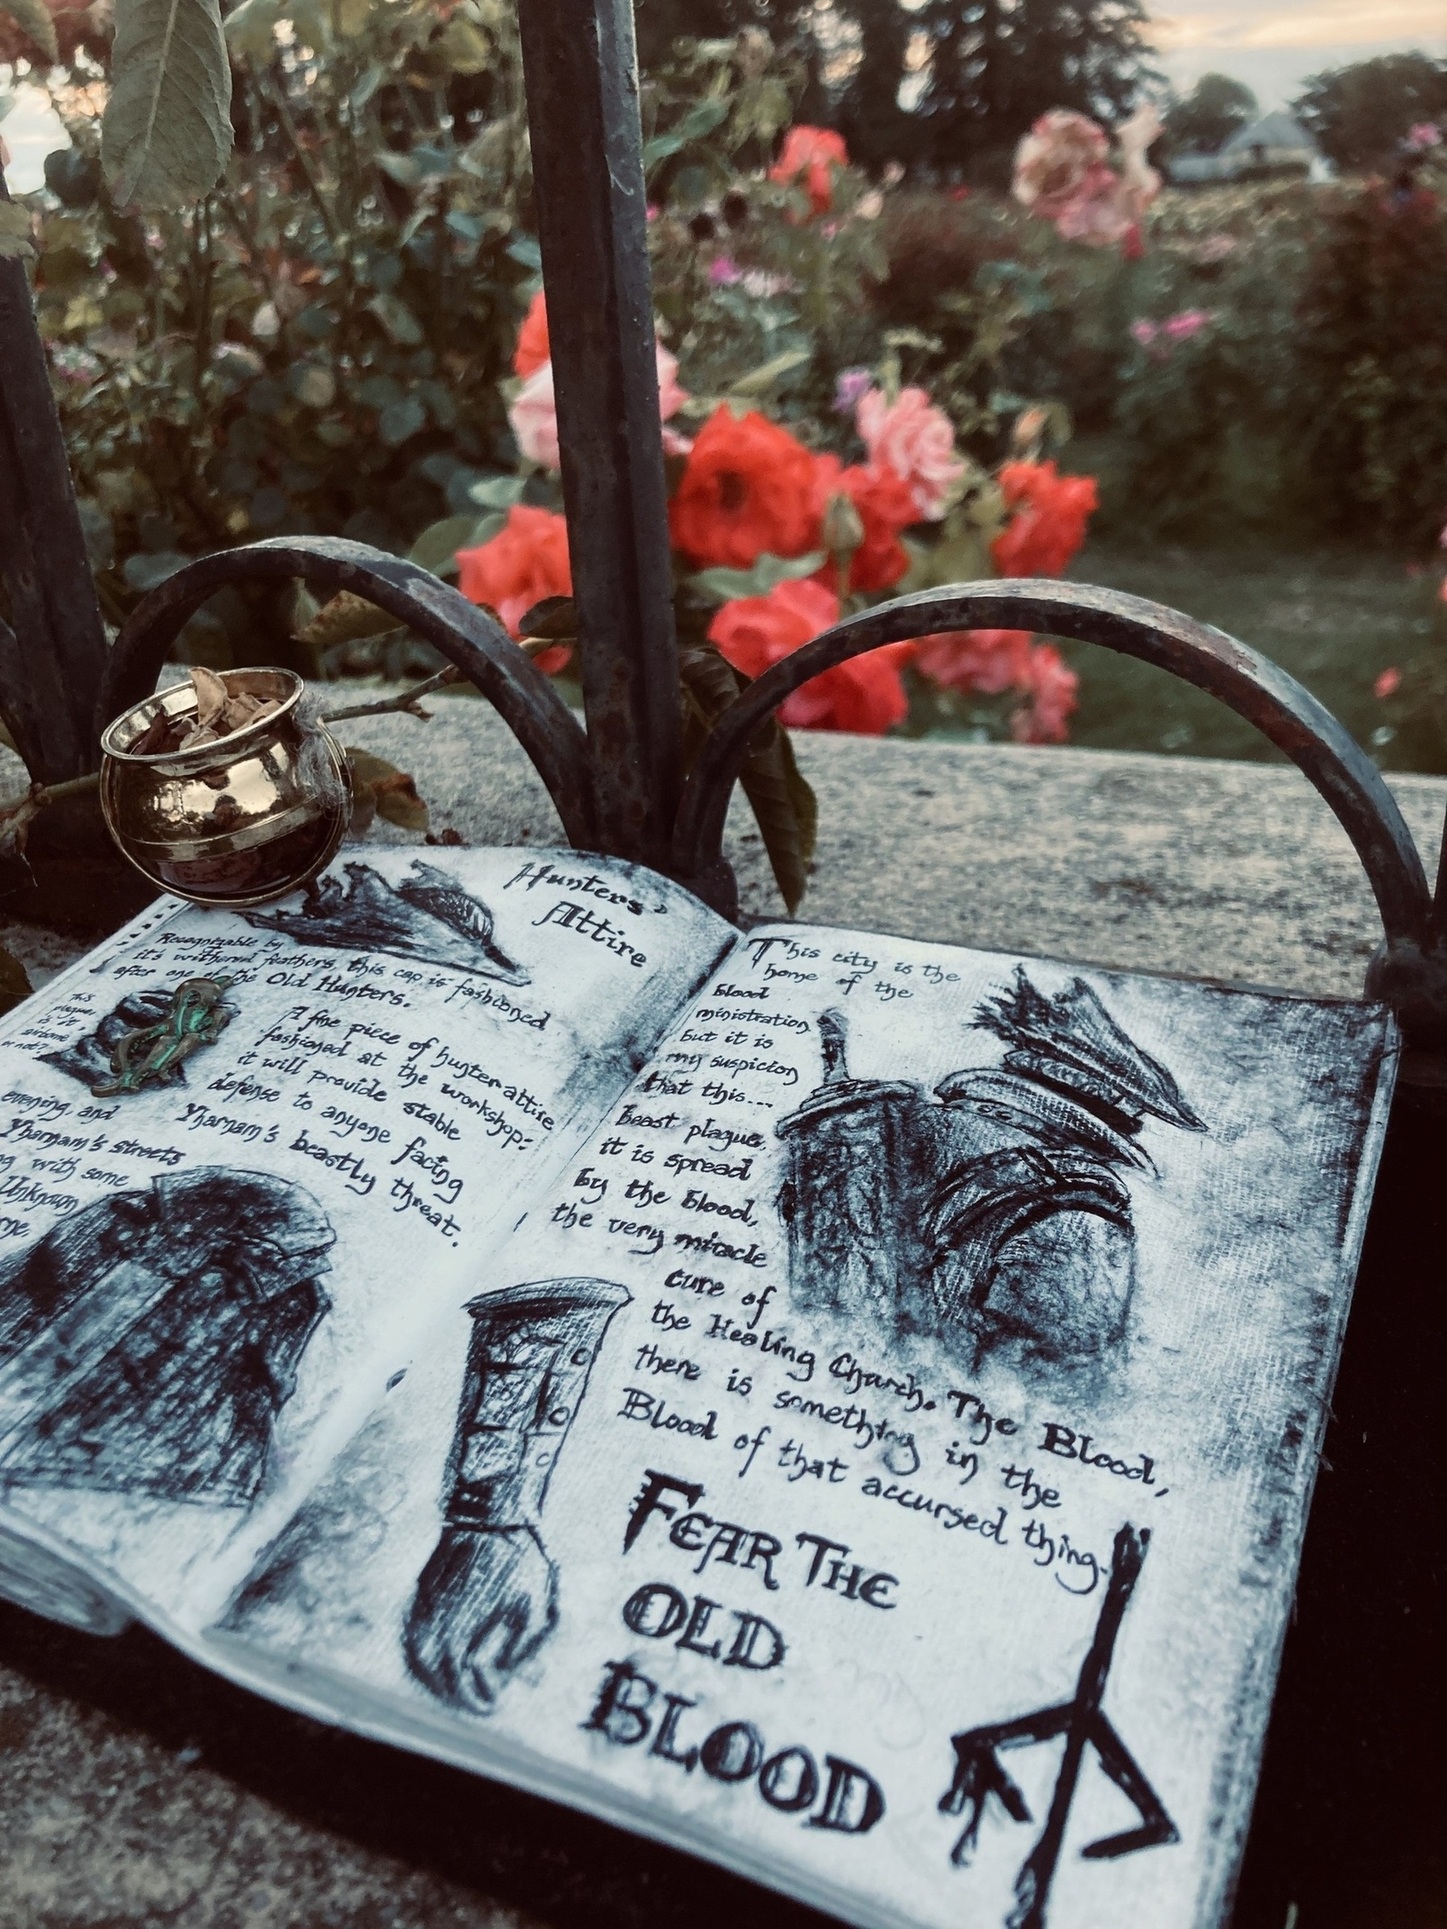 Hunters'
Attire
Recognizable by
it's withered feathers, this cap is fashioned
after one of the Old Hunters.
This
plague,
is it
airborne
or not?
A fine piece of hunter attire
fashioned at the workshop:
it will provide stable
defense to anyone facing
Yharnam's beastly threat.
evening, and
Yharnam's streets
with some
Unknown
This city is the
home of the
blood
ministration,
but it is
my suspicion
that this...
beast plague,
it is spread
by the blood,
the very miracle
cure of
the Healing Church. The Blood,
there is something in the
Blood of that accursed thing.
FEAR THE
OLD
BLOOD